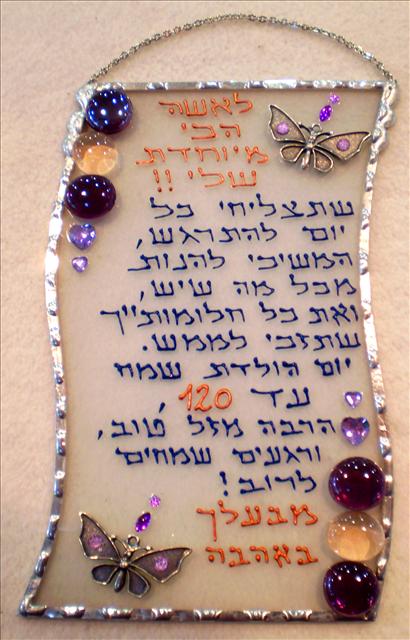 לאשה
הכי
מיוחדת
שלי !!
שתצליחי כל
יום להתרגש,
המשיכי להנות
מכל מה שיש,
ואת כל חלומותייך
שתזכי לממש.
יום הולדת שמח
עד 120,
הרבה מזל טוב,
ורגעים שמחים
לרוב!
מבעלך
באהבה